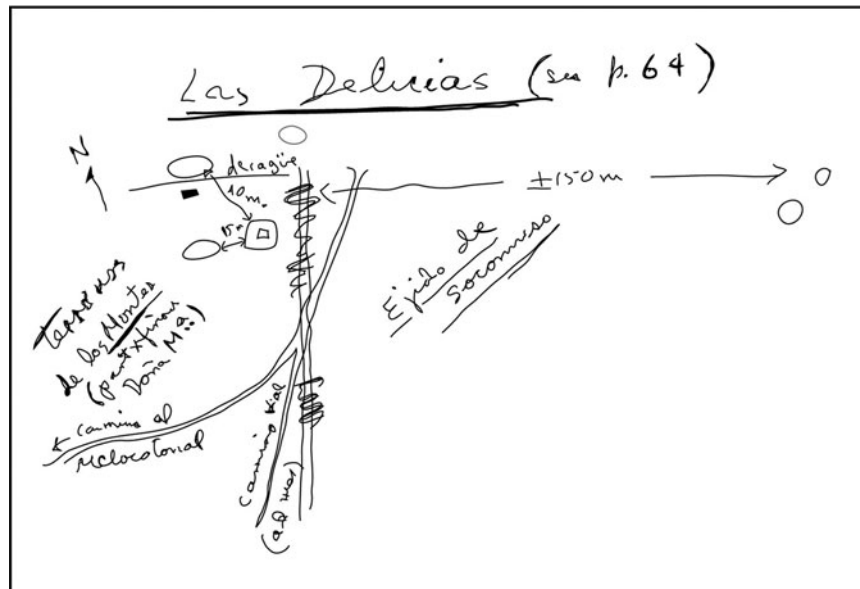 Las Delicias (ver p. 64)
N
desagüe
10 m.
15 m
±150 m
Ejido de
Soconusco
Terrenos
de los Montes
Doña Mª
← camino al
Melocotonal
camino real